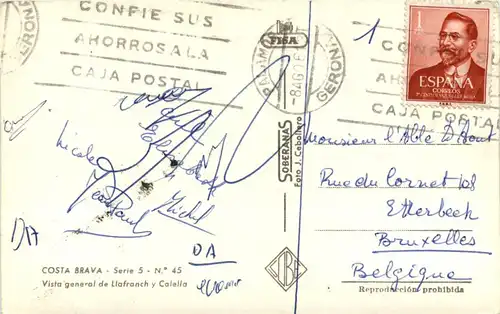 CONFIE SUS
AHORROS A LA
CAJA POSTAL
GERONA
FISA
GERONA
1
CONFIE SUS
AHORROS A LA
CAJA POSTAL
1
ESPAÑA
CORREOS
Nicole
Elisabeth
Jean Paul
Michel
DA
SOBERANAS
Foto J. Caballero
Monsieur l'Abbé
Rue du Cornet 108
Etterbeek
Bruxelles
Belgique
COSTA BRAVA - Serie 5 - N.º 45
Vista general de Llafranch y Calella
Reproducción prohibida